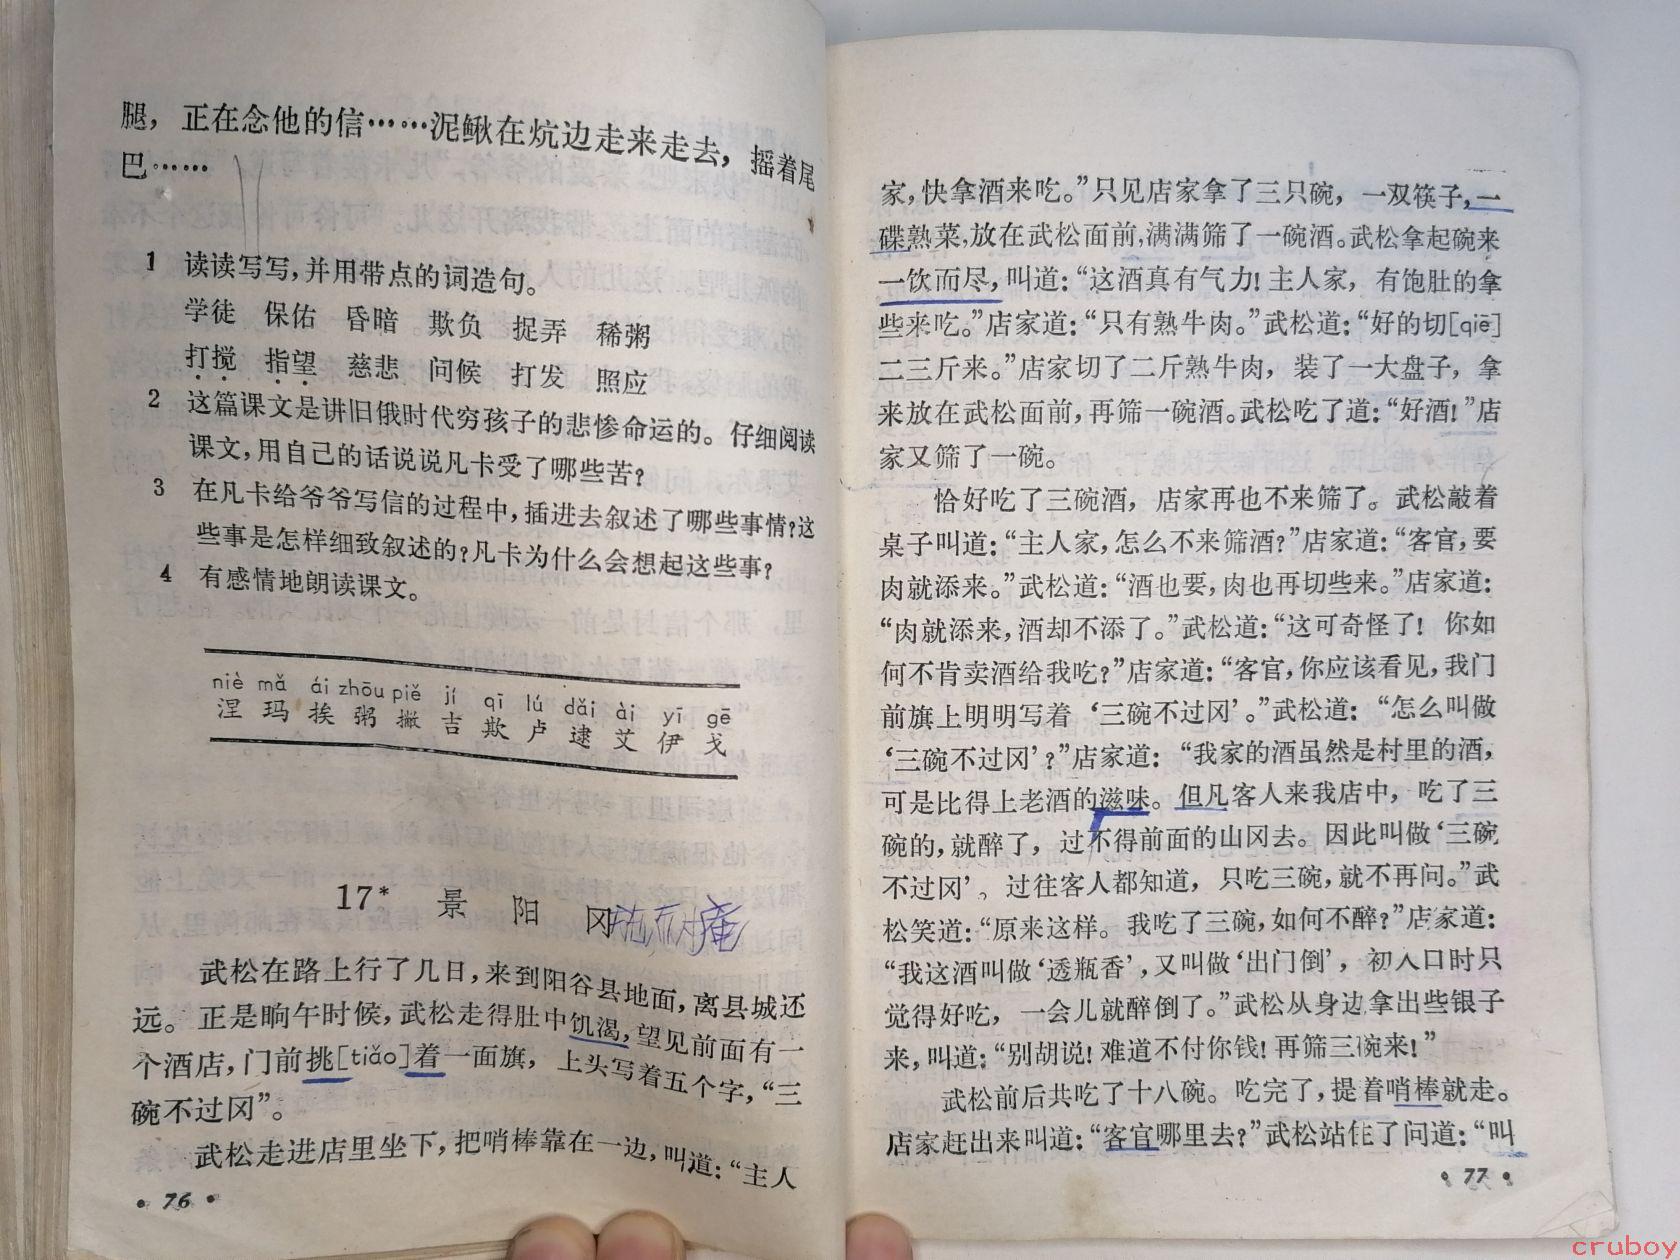 腿，正在念他的信……泥鳅在炕边走来走去，摇着尾
巴……
1 读读写写，并用带点的词造句。
学徒 保佑 昏暗 欺负 捉弄 稀粥
打搅 指望 慈悲 问候 打发 照应
2 这篇课文是讲旧俄时代穷孩子的悲惨命运的。仔细阅读
课文，用自己的话说说凡卡受了哪些苦？
3 在凡卡给爷爷写信的过程中，插进去叙述了哪些事情？这
些事是怎样细致叙述的？凡卡为什么会想起这些事？
4 有感情地朗读课文。
niè mǎ ái zhōu piě jí qī lú dǎi ài yī gē
涅 玛 挨 粥 撇 吉 欺 卢 逮 艾 伊 戈
17* 景阳冈
武松在路上行了几日，来到阳谷县地面，离县城还
远。正是晌午时候，武松走得肚中饥渴，望见前面有一
个酒店，门前挑[tiǎo]着一面旗，上头写着五个字，“三
碗不过冈”。
武松走进店里坐下，把哨棒靠在一边，叫道：“主人
·76·
家，快拿酒来吃。”只见店家拿了三只碗，一双筷子，一
碟熟菜，放在武松面前，满满筛了一碗酒。武松拿起碗来
一饮而尽，叫道：“这酒真有气力！主人家，有饱肚的拿
些来吃。”店家道：“只有熟牛肉。”武松道：“好的切[qiē]
二三斤来。”店家切了二斤熟牛肉，装了一大盘子，拿
来放在武松面前，再筛一碗酒。武松吃了道：“好酒！”店
家又筛了一碗。
恰好吃了三碗酒，店家再也不来筛了。武松敲着
桌子叫道：“主人家，怎么不来筛酒？”店家道：“客官，要
肉就添来。”武松道：“酒也要，肉也再切些来。”店家道：
“肉就添来，酒却不添了。”武松道：“这可奇怪了！你如
何不肯卖酒给我吃？”店家道：“客官，你应该看见，我门
前旗上明明写着‘三碗不过冈’。”武松道：“怎么叫做
‘三碗不过冈’？”店家道：“我家的酒虽然是村里的酒，
可是比得上老酒的滋味。但凡客人来我店中，吃了三
碗的，就醉了，过不得前面的山冈去。因此叫做‘三碗
不过冈’。过往客人都知道，只吃三碗，就不再问。”武
松笑道：“原来这样。我吃了三碗，如何不醉？”店家道：
“我这酒叫做‘透瓶香’，又叫做‘出门倒’，初入口时只
觉得好吃，一会儿就醉倒了。”武松从身边拿出些银子
来，叫道：“别胡说！难道不付你钱！再筛三碗来！”
武松前后共吃了十八碗。吃完了，提着哨棒就走。
店家赶出来叫道：“客官哪里去？”武松站住了问道：“叫
·77·
cruboy